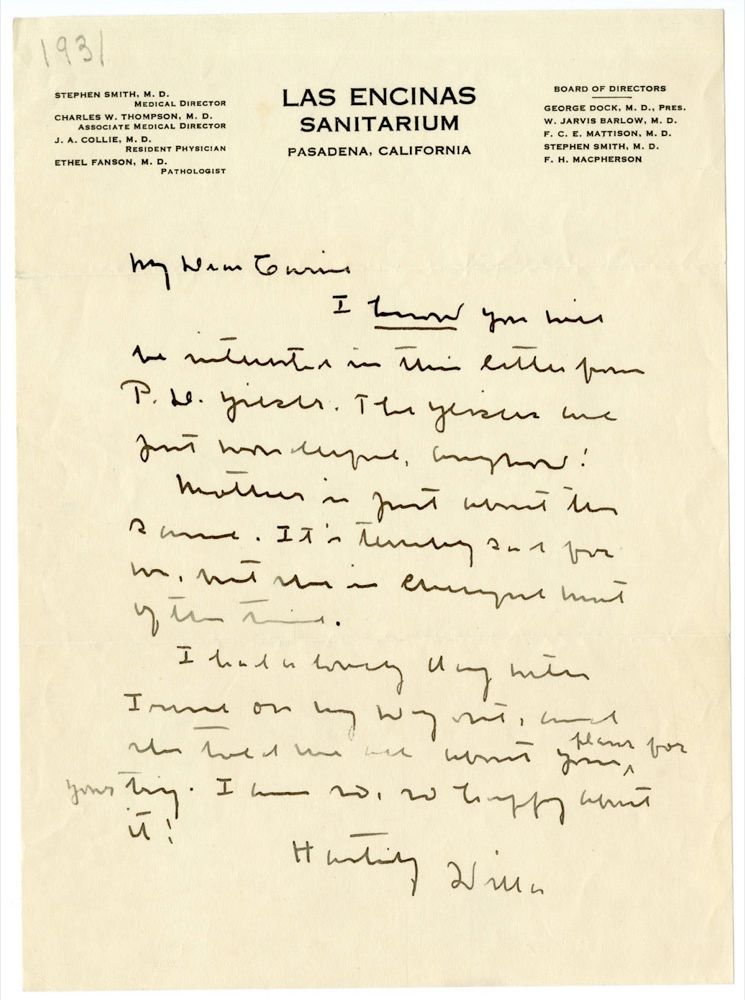 1931
STEPHEN SMITH, M. D.
MEDICAL DIRECTOR
CHARLES W. THOMPSON, M. D.
ASSOCIATE MEDICAL DIRECTOR
J. A. COLLIE, M. D.
RESIDENT PHYSICIAN
ETHEL FANSON, M. D.
PATHOLOGIST
LAS ENCINAS
SANITARIUM
PASADENA, CALIFORNIA
BOARD OF DIRECTORS
GEORGE DOCK, M. D., PRES.
W. JARVIS BARLOW, M. D.
F. C. E. MATTISON, M. D.
STEPHEN SMITH, M. D.
F. H. MACPHERSON
My Dear Carrie
I know you will
be interested in this letter from
P. D. Yeiser. The Yeisers are
just wonderful, anyhow!
Mother is just about the
same. It's terribly sad for
me, but she is cheerful most
of the time.
I had a lovely day with
Irene on my way out, and
she told me all about your plans for
your trip. I am so, so happy about
it!
Heartily
Willa